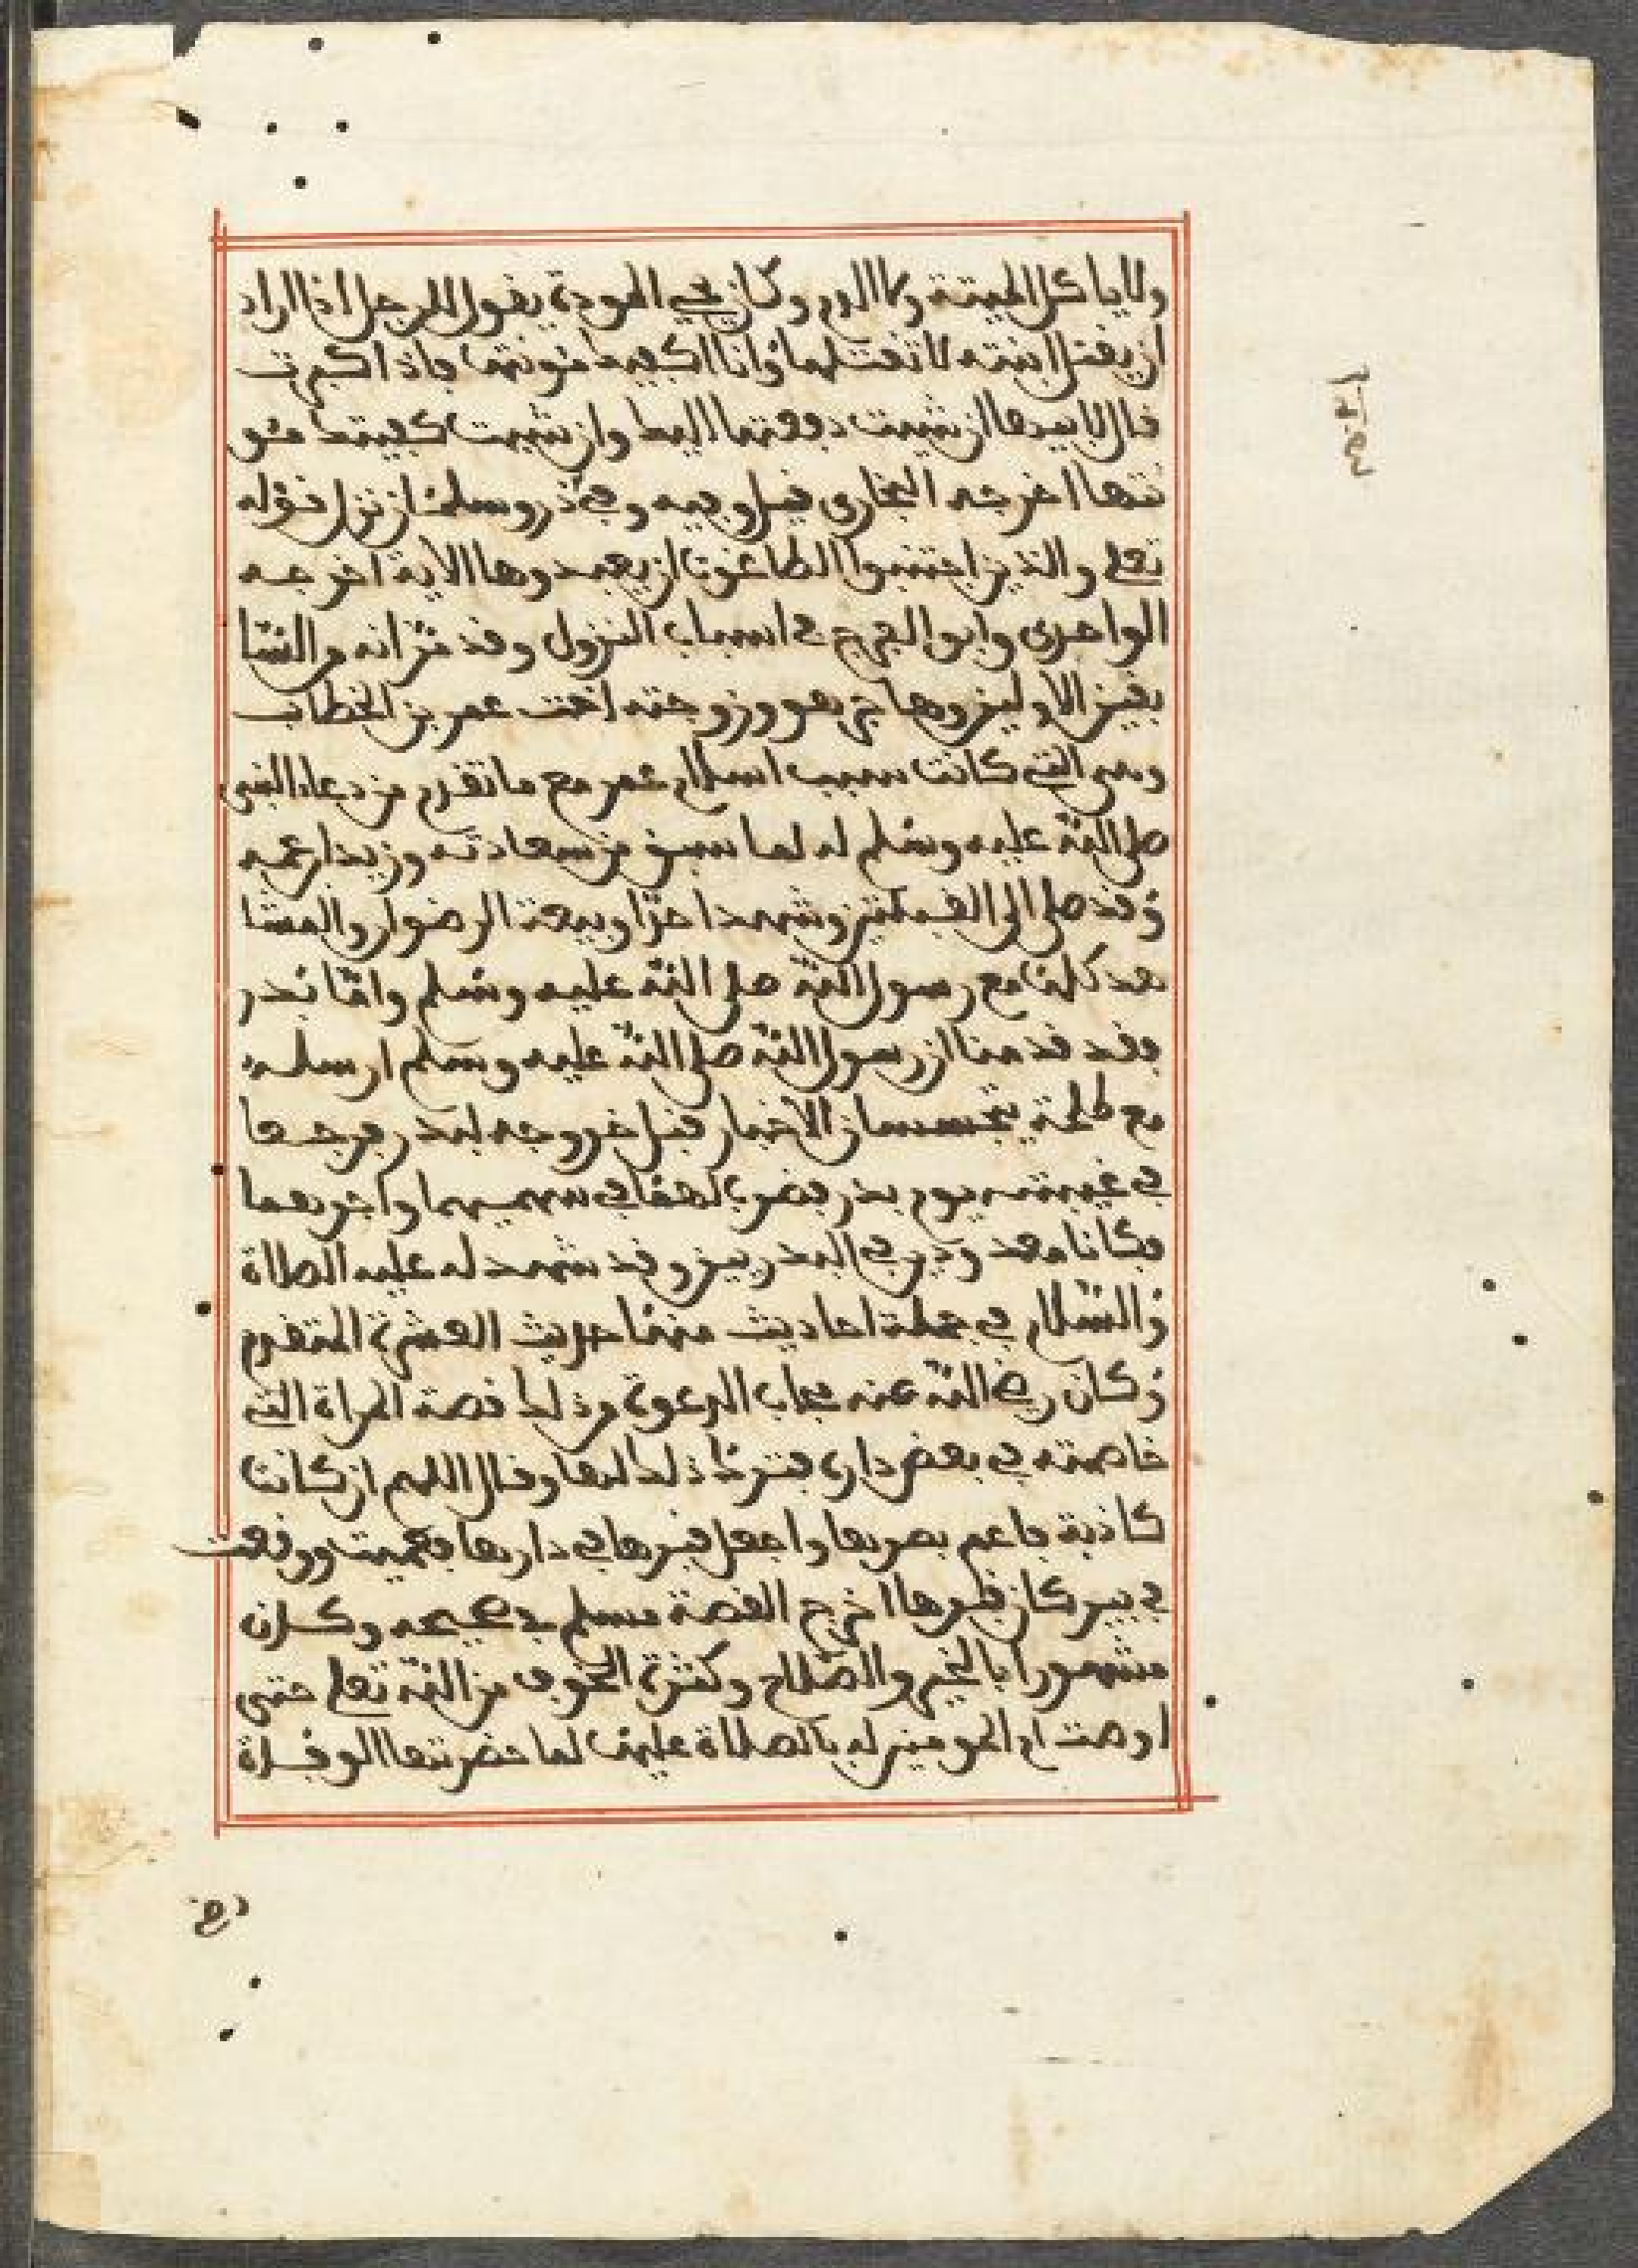 ولا ياكل الميتة ولا الدم وكان يحيي الموءودة يقول للرجل اذا اراد
ان يقتل ابنته لا تقتلها وانا اكفيك مئونتها فاذا كبرت
قال لابيها ان شيت دفعتها اليك وان شيت كفيتك مئو
نتها اخرجه البخاري قيل وفيه وفي ذر وسلمان نزل قوله
تعلى والذين اجتنبوا الطاغوت ان يعبدوها الاية اخرجه
الواحدي وابو الفرج في اسباب النزول وقد مر انه من السا
بقين الاولين وهاجر هو وزوجته اخت عمر بن الخطاب
وهي التي كانت سبب اسلام عمر مع ما تقدم من دعاء النبي
صلى الله عليه وسلم له لما سبق من سعادته وزيد ابن عمه
وقد صلى الى القبلتين وشهد احدا وبيعة الرضوان والمشا
هد كلها مع رسول الله صلى الله عليه وسلم واما بدر
فقد قدمنا ان رسول الله صلى الله عليه وسلم ارسله
مع طلحة يتجسسان الاخبار قبل خروجه لبدر فرجعا
في غيبته يوم بدر فضرب لهما في سهميهما واجرهما
فكانا معدودين في البدريين وقد شهد له عليه الصلاة
والسلام في جملة احاديث منها حديث العشرة المتقدم
وكان رضي الله عنه مجاب الدعوة من ذلك قصة المراة التي
خاصمته في بعض داره فترك ذلك لها وقال اللهم ان كانت
كاذبة فاعم بصرها واجعل قبرها في دارها فعميت ووقعت
في بير كان قبرها اخرج القصة مسلم في صحيحه وكان
مشهورا بالخير والصلاح وكثرة الخوف من الله تعلى حتى
اوصت ام المومنين له بالصلاة عليها لما حضرتها الوفاة